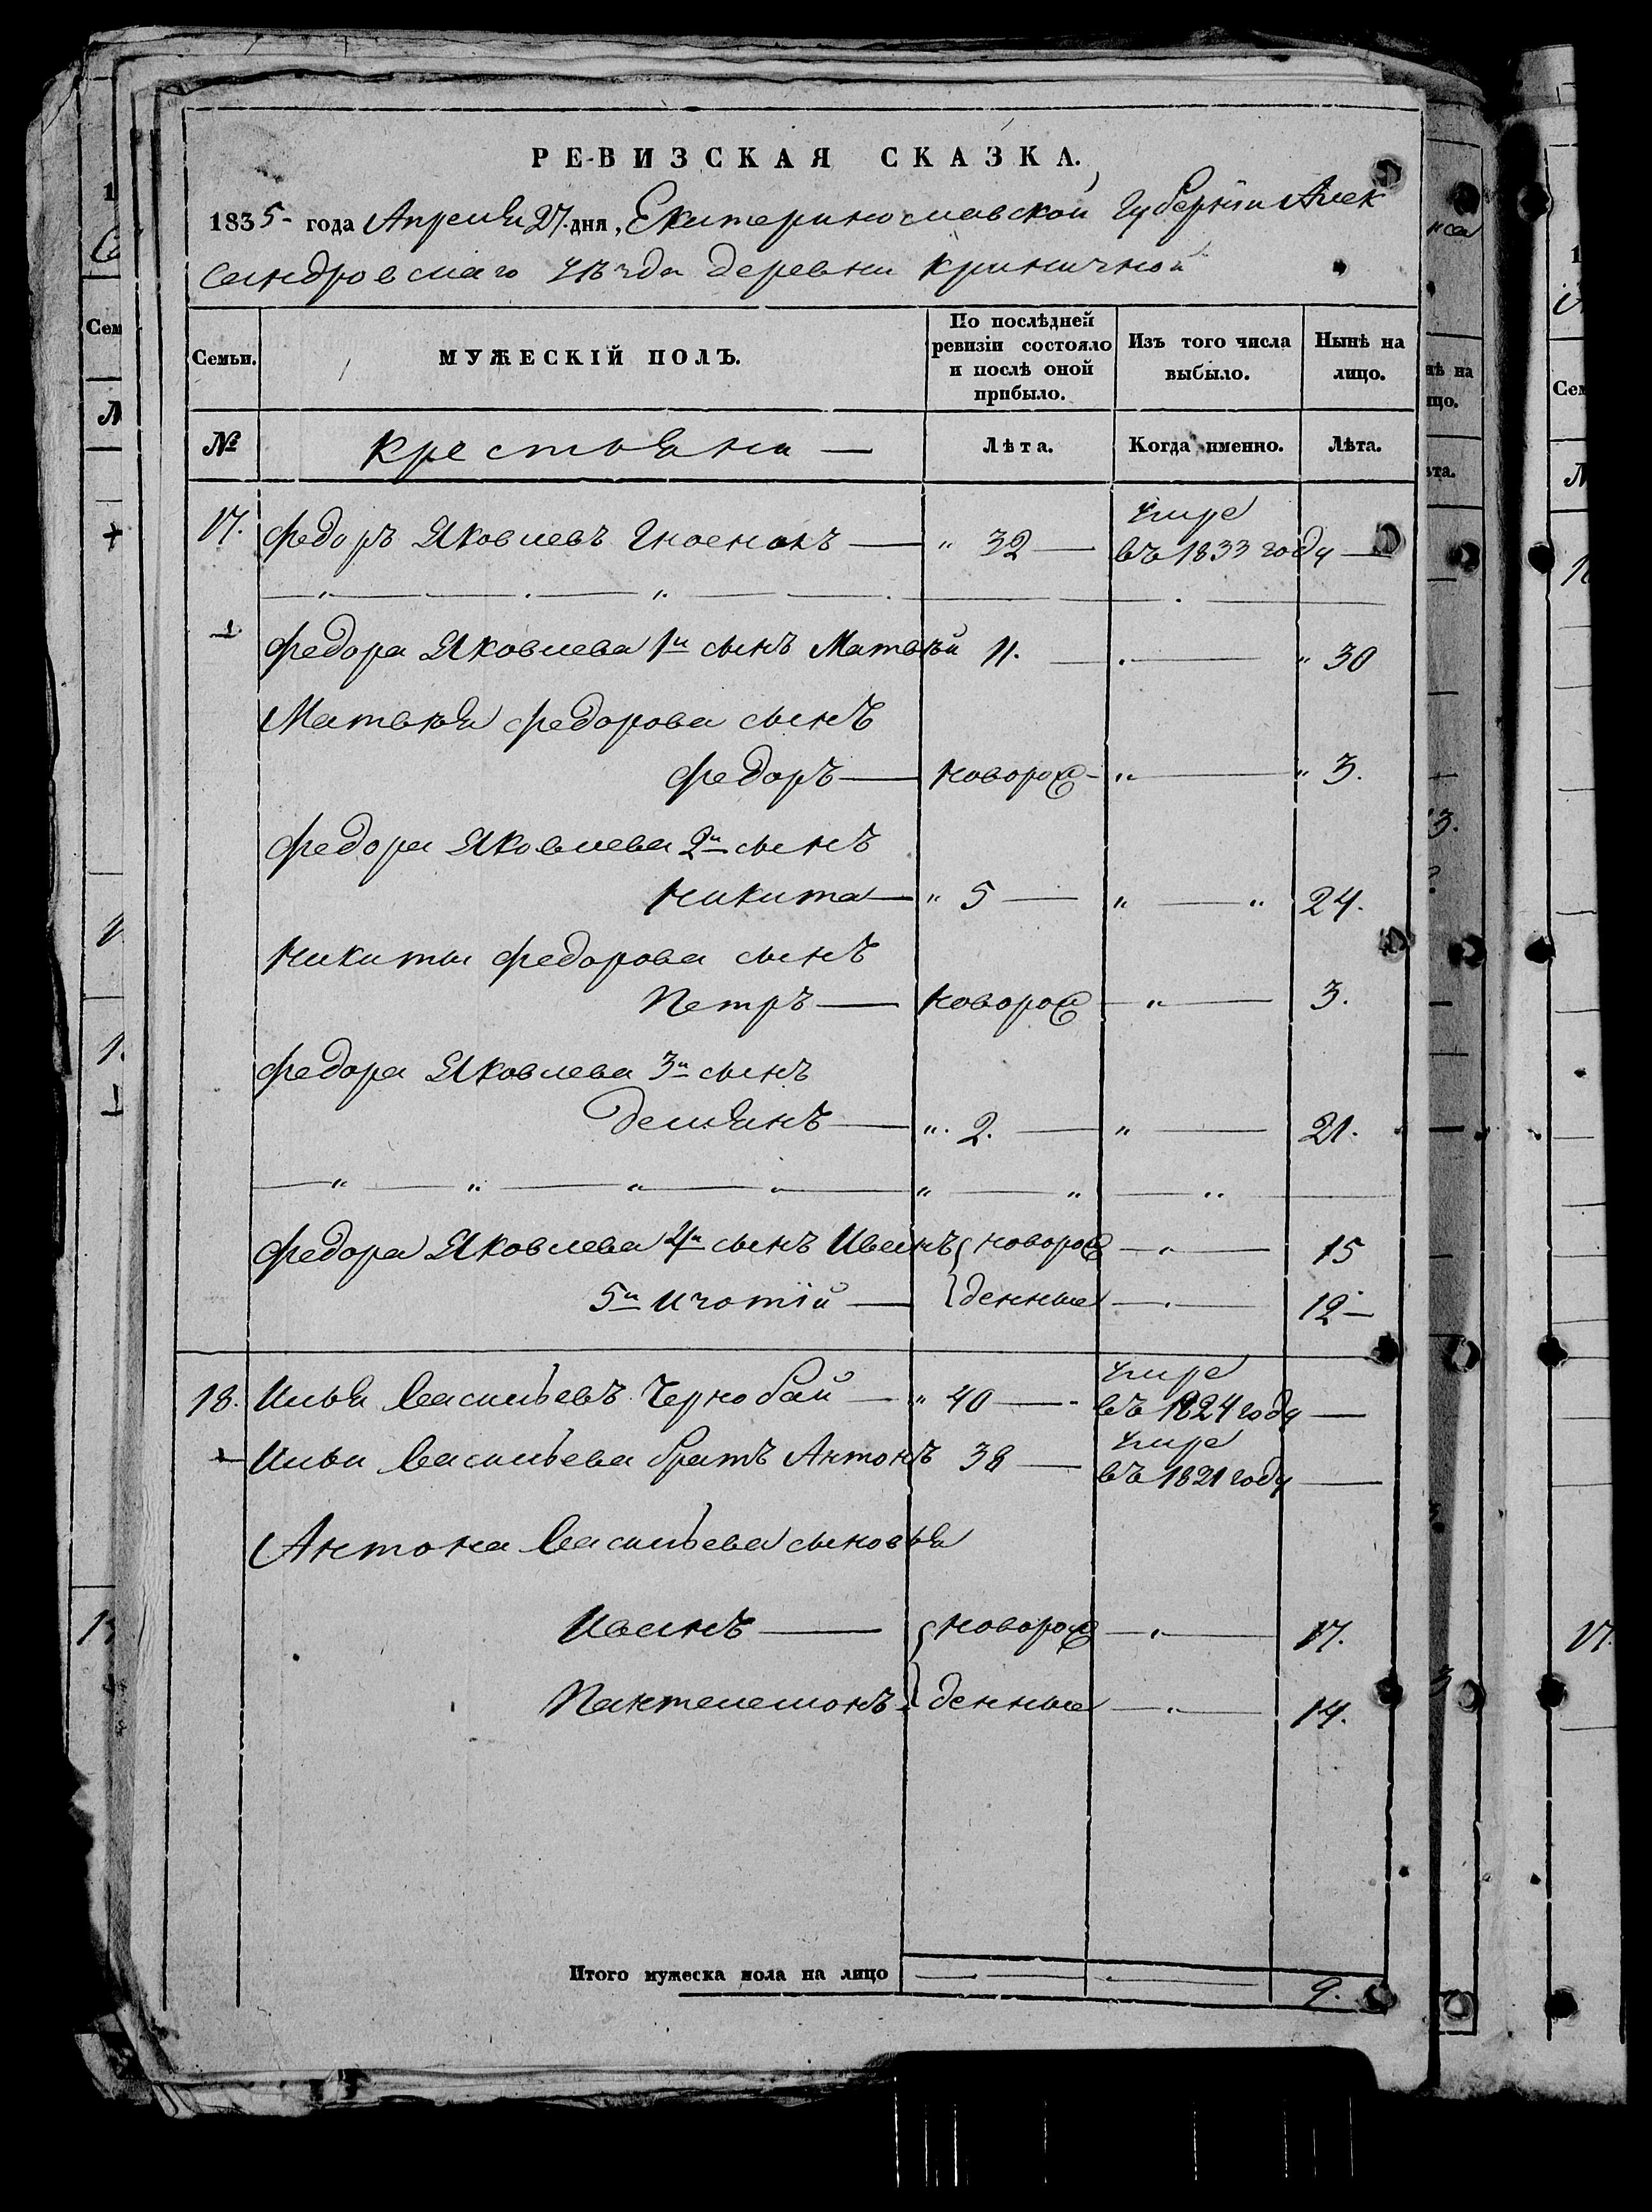 РЕВИЗСКАЯ СКАЗКА.
1835 года Апреля 27. дня, Екатеринославской Губерніи Алек
сандровскаго уѣзда деревни Криничной
Семьи. МУЖЕСКІЙ ПОЛЪ. По послѣдней ревизіи состояло и послѣ оной прибыло. Изъ того числа выбыло. Нынѣ на лицо.
№ Крестьяни — Лѣта. Когда именно. Лѣта.
17. Федоръ Яковлевъ Гноенокъ — " 32 — умре въ 1833 году —
1 Федора Яковлева 1й сынъ Матвѣй 11. — " — " 30
Матвѣя Федорова сынъ
Федоръ — новорож — " — " 3.
Федора Яковлева 2й сынъ
Никита — " 5 — " — " 24.
Никиты Федорова сынъ
Петръ — новорож — " — 3.
Федора Яковлева 3й сынъ
Демьянъ — " 2. — " — 21.
Федора Яковлева 4й сынъ Иванъ { новорож — " — 15
5й Изотій — { денные — " — 12 —
18. Илья Васильевъ Чернобай — " 40 — умре въ 1824 году —
Ильи Васильева братъ Антонъ 38 — умре въ 1821 году —
Антона Васильева сыновья
Иванъ — { новорож — " — 17.
Пантелемонъ { денные — " — 14.
Итого мужеска пола на лицо — — 9.